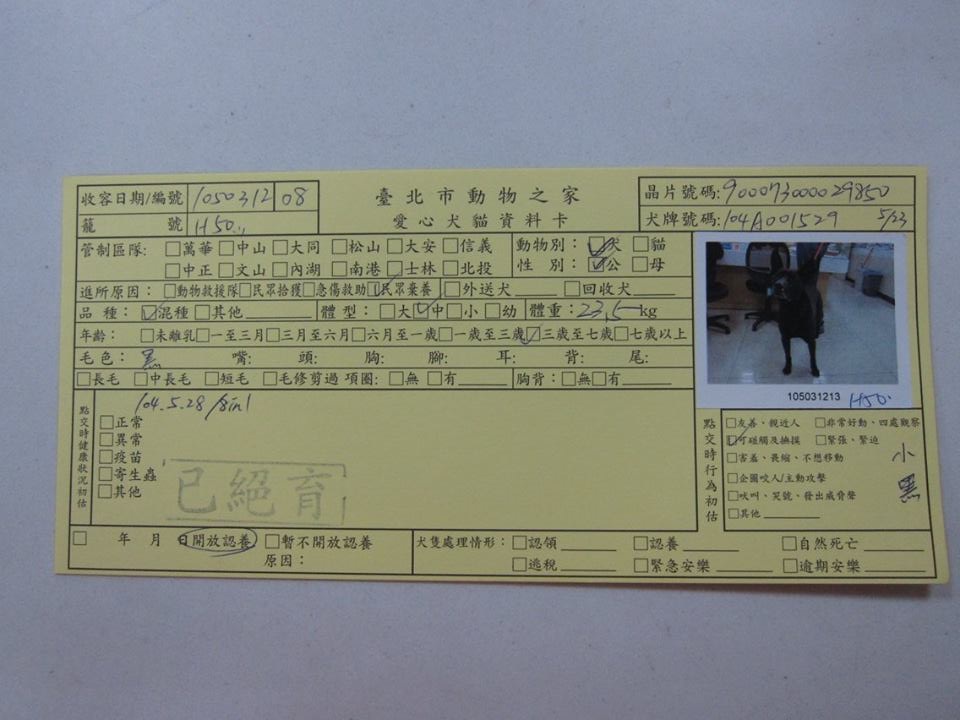 收容日期/編號 1050312 08
臺北市動物之家
晶片號碼:900073000029850
籠 號 H50
愛心犬貓資料卡
犬牌號碼:104A001529 5/23
管制區隊: □萬華□中山□大同 □松山□大安□信義
動物別:☑犬 □貓
□中正□文山□內湖 □南港□士林□北投
性 別:☑公 □母
進所原因:□動物救援隊□民眾拾獲□急傷救助☑民眾棄養 □外送犬 □回收犬
品 種:☑混種□其他 體 型:□大☑中□小□幼 體重:23.5kg
年齡: □未離乳□一至三月□三月至六月□六月至一歲□一歲至三歲☑三歲至七歲□七歲以上
毛色:黑 嘴: 頭: 胸: 腳: 耳: 背: 尾:
□長毛 □中長毛 □短毛 □毛修剪過 項圈:□無 □有 胸背:□無□有
105031213 H50
點交時健康狀況初估
104.5.28 8in1
□正常
□異常
□疫苗
□寄生蟲
□其他
已絕育
點交時行為初估
□友善、親近人 □非常好動、四處觀察
☑可碰觸及撫摸 □緊張、緊迫
□害羞、畏縮、不想移動
□企圖咬人/主動攻擊
□吠叫、哭號、發出威脅聲
□其他
小黑
□ 年 月 日開放認養 □暫不開放認養
原因:
犬隻處理情形:□認領 □認養 □自然死亡
□逃脫 □緊急安樂 □逾期安樂